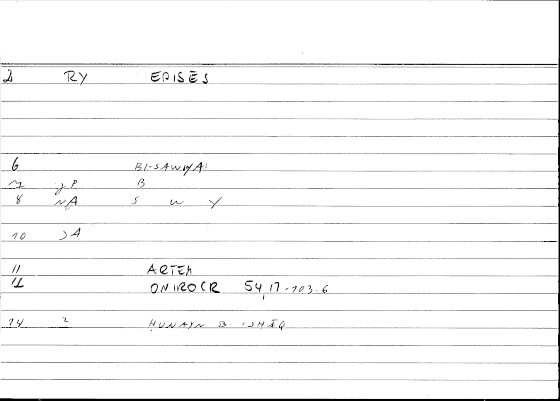 2 RY EPISES
6 BI-SAWIYA
B
8 NA S W Y
10 JA
11 ARTEM
12 ONIROCR 54,17-103.6
14 2 HUNAYN B ISHĀQ